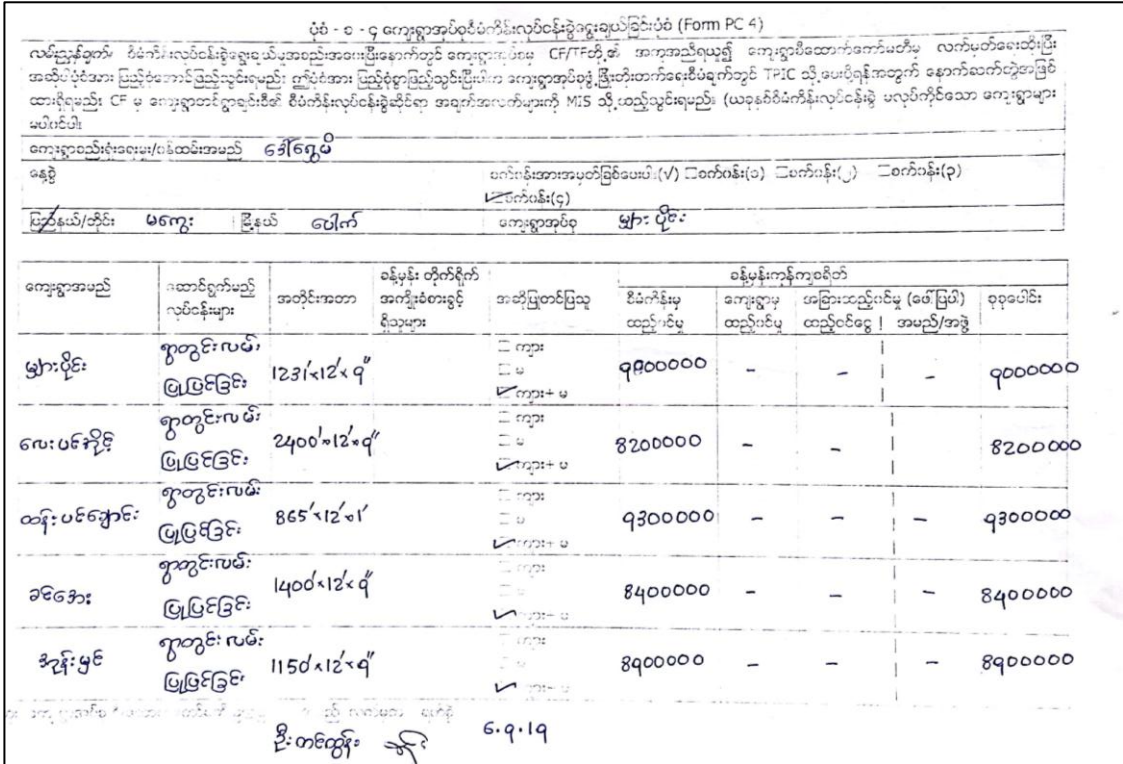 ပုံစံ - စ - ၄ ကျေးရွာအုပ်စုစီမံကိန်းလုပ်ငန်းခွဲရွေးချယ်ခြင်းပုံစံ (Form PC 4)
လမ်းညွှန်ချက်၊ စီမံကိန်းလုပ်ငန်းခွဲရွေးချယ်မှုအစည်းအဝေးပြီးနောက်တွင် ကျေးရွာအုပ်စုမှ CF/TFတို့၏ အကူအညီရယူ၍ ကျေးရွာစီထောက်ကော်မတီမှ လက်မှတ်ရေးထိုးပြီး
အဆိုပါပုံစံအား ပြည့်စုံအောင်ဖြည့်သွင်းရမည်။ ဤပုံစံအား ပြည့်စုံစွာဖြည့်သွင်းပြီးပါက ကျေးရွာအုပ်စုဖွံ့ဖြိုးတိုးတက်ရေးစီမံချက်တွင် TPIC သို့ပေးပို့ရန်အတွက် နောက်ဆက်တွဲအဖြစ်
ထားရှိရမည်။ CF မှ ကျေးရွာတစ်ရွာချင်းစီ၏ စီမံကိန်းလုပ်ငန်းခွဲဆိုင်ရာ အချက်အလက်များကို MIS သို့ထည့်သွင်းရမည်။ (ယခုနှစ်စီမံကိန်းလုပ်ငန်းခွဲ မလုပ်ကိုင်သော ကျေးရွာများ
မပါဝင်ပါ။
ကျေးရွာစည်းရုံးရေးမှူး/ဝန်ထမ်းအမည် ဒေါ်ရွှေမိ
နေ့စွဲ စက်ဝန်းအားအမှတ်ခြစ်ပေးပါ (√) □စက်ဝန်း(၁) □စက်ဝန်း(၂) □စက်ဝန်း(၃)
☑စက်ဝန်း(၄)
ပြည်နယ်/တိုင်း မကွေး မြို့နယ် ပေါက် ကျေးရွာအုပ်စု မျှားပိုင်း
ကျေးရွာအမည် ဆောင်ရွက်မည့် လုပ်ငန်းများ အတိုင်းအတာ ခန့်မှန်း တိုက်ရိုက် အကျိုးခံစားခွင့် ရှိသူများ အဆိုပြုတင်ပြသူ ခန့်မှန်းကုန်ကျစရိတ်
စီမံကိန်းမှ ထည့်ဝင်မှု ကျေးရွာမှ ထည့်ဝင်မှု အခြားထည့်ဝင်မှု (ဖော်ပြပါ) ထည့်ဝင်ငွေ | အမည်/အဖွဲ့ စုစုပေါင်း
မျှားပိုင်း ရွာတွင်းလမ်း ပြုပြင်ခြင်း 1231'x12'x9" □ ကျား □ မ ☑ ကျား+ မ 9000000 - - - 9000000
လေးပင်အိုင့် ရွာတွင်းလမ်း ပြုပြင်ခြင်း 2400'x12'x9" □ ကျား □ မ ☑ ကျား+ မ 8200000 - - 8200000
ထန်းပင်ချောင်း ရွာတွင်းလမ်း ပြုပြင်ခြင်း 865'x12'x1' □ ကျား □ မ ☑ ကျား+ မ 9300000 - - - 9300000
ခင်အေး ရွာတွင်းလမ်း ပြုပြင်ခြင်း 1400'x12'x9" □ ကျား □ မ ☑ ကျား+ မ 8400000 - - - 8400000
အုန်းမှင် ရွာတွင်းလမ်း ပြုပြင်ခြင်း 1150'x12'x9" □ ကျား □ မ ☑ ကျား+ မ 8900000 - - - 8900000
ဦးတင်ထွန်း 6.9.19